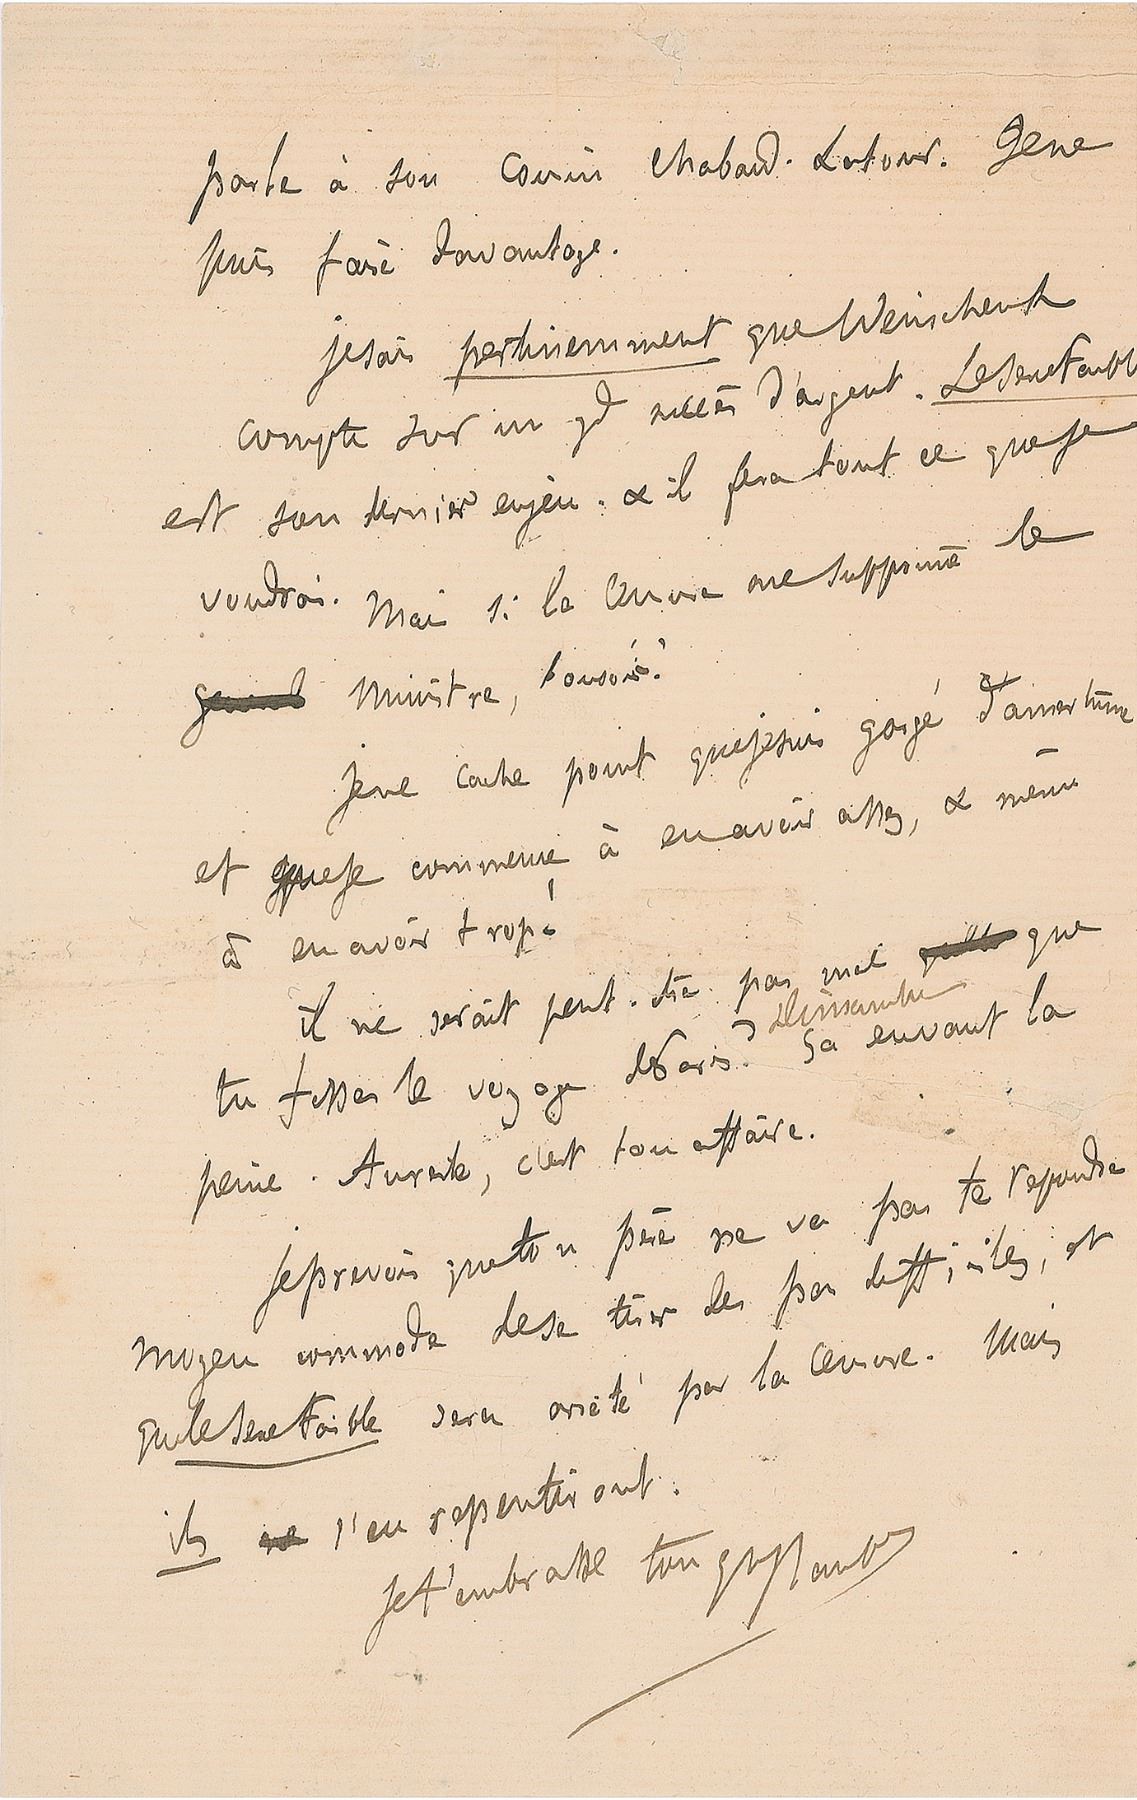 parle à son cousin Chabaud-Latour. Je ne
puis faire davantage.
je sais pertinemment que Weinschenk
compte sur un gd succès d'argent. Le Sexe Faible
est son dernier enjeu. & il fera tout ce que je
voudrai. Mais si la Censure me supprime le
general Ministre, bonsoir!
Je ne cache point que je suis gorgé d'amertume
et que je commence à en avoir assez, & même
à en avoir trop!
il ne serait peut-être pas mal que
tu fisses le voyage de Paris? Ça en vaut la
peine. Au reste, c'est ton affaire.
Je prévois que ton père ne va pas te répondre
moyen commode de se tirer des pas difficiles, et
que le Sexe Faible sera arrêté par la Censure. Mais
ils ne s'en repentiront.
Je t'embrasse ton Gve Flaubert